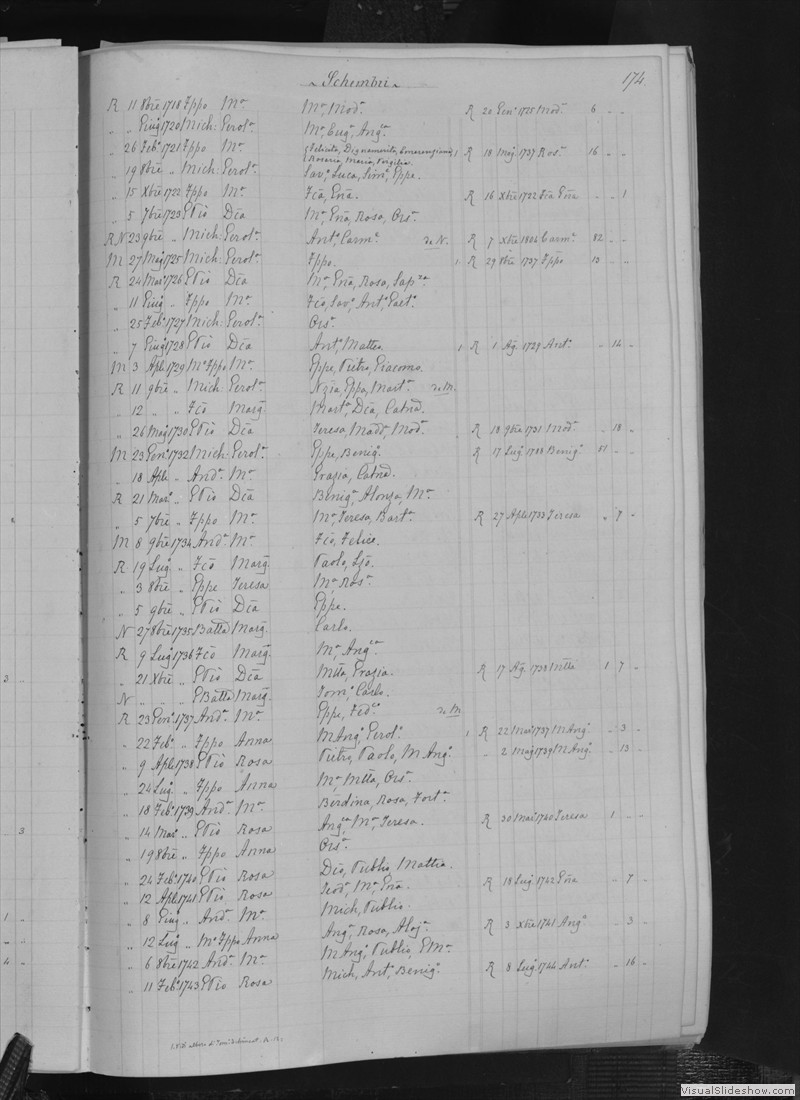 Schembri 174.
R 11 8bre 1718 Fppo Ma. Ma, Mod. R 20 Gen. 1725 Mod. 6 " "
" " Giug 1720 Mich. Gerol. Ma, Eug, Angca.
" 26 Feb. 1721 Fppo Ma. Felicita, Rosaria, Maria, Virgilia. 1 R 18 Mag. 1737 Ros. 16 " "
" 19 8bre " Mich. Gerol. Sav, Luca, Sim, Gppe.
" 15 Xbre 1722 Fppo Ma. Fca, Gna. R 16 Xbre 1722 Fca Gna " " 1
" 5 7bre 1723 Dca Ma, Gna, Rosa, Ors.
R N 23 9bre " Mich. Gerol. Ant, Carm. R 7 Xbre 1804 Carm. 82 " "
M 27 Mag. 1725 Mich. Gerol. Fppo. 1 R 29 8bre 1737 Fppo 13 " "
R 24 Mar. 1726 Dca Ma, Gna, Rosa, Sapza.
" 11 Giug " Fppo Ma. Fco, Sav, Ant, Gaet.
" 25 Feb. 1727 Mich. Gerol. Ors.
" 7 Giug. 1728 Dca Ant, Mattea. 1 R 1 Ag. 1729 Ant. " 14 "
M 3 Aple 1729 Mo Fppo Ma. Gppe, Pietro, Giacomo.
R 11 9bre " Mich. Gerol. Nzia, Gppa, Mart.
" 12 " " Fco Marg. Mart, Dca, Catna.
" 26 Mag. 1730 Dca Teresa, Madd, Mod. R 18 9bre 1731 Mod. " 18 "
M 23 Gen. 1732 Mich. Gerol. Gppe, Benig. R 17 Lug. 1783 Benig. 51 " "
" 18 Aple " And. Ma. Grazia, Catna.
R 21 Mar. " Dca Benig, Alonza, Ma.
" 5 7bre " Fppo Ma. Ma, Teresa, Bart. R 27 Aple 1733 Teresa " 7 "
M 8 9bre 1734 And. Ma. Fco, Felice.
R 19 Lug. " Fco Marg. Paolo, Gio.
" 3 8bre " Gppe Teresa Ma Ros.
" 5 9bre " Dca Gppe.
N 27 8bre 1735 Batta Marg. Carlo.
R 9 Lug 1736 Fco Marg. Ma, Angca.
" 21 Xbre " Dca Mtta, Grazia. R 17 Ag. 1738 Mtta 1 7 "
N " " " GBatta Marg. Tom, Carlo.
R 23 Gen. 1737 And. Ma. Gppe, Fedco.
" 22 Feb. " Fppo Anna MAng, Gerol. 1 R 22 Mar. 1737 MAng. " 3 "
" 9 Aple 1738 Rosa Pietro, Paolo, MAng. " 2 Mag. 1739 MAng. " 13 "
" 24 Lug " Fppo Anna Ma, Mtta, Ors.
" 18 Feb. 1739 And. Ma. Berdina, Rosa, Fort.
" 14 Mar. " Rosa Angca, Ma, Teresa. R 30 Mar. 1740 Teresa 1 " "
" 19 8bre " Fppo Anna Ors.
" 24 Feb. 1740 Rosa Dca, Publio, Mattia.
" 12 Aple 1741 Rosa Teod, Ma, Gna. R 18 Lug. 1742 Gna " 7 "
" 8 Giug " And. Ma. Mich, Publio.
" 12 Lug. " Mo Fppo Anna Ang, Rosa, Aloj. R 3 Xbre 1741 Ang. " 3 "
" 6 8bre 1742 And. Ma. MAng, Publio, GMa.
" 11 Feb. 1743 Rosa Mich, Ant, Benig. R 8 Lug. 1744 Ant. " 16 "
VisualSlideshow.com